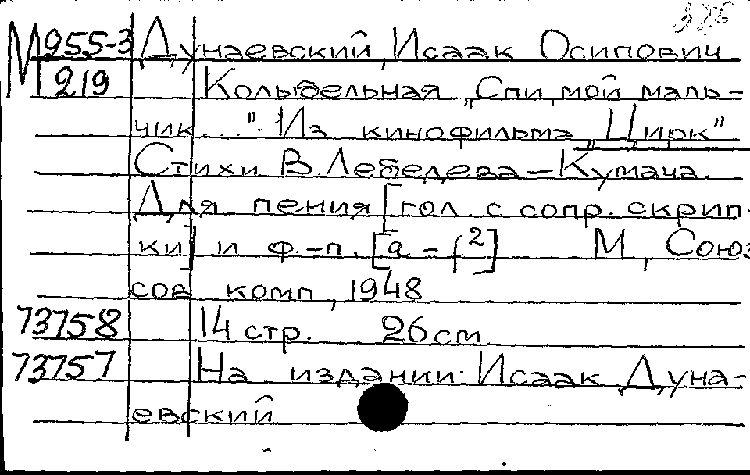 М 955-3 Дунаевский, Исаак Осипович
219 Колыбельная "Спи, мой маль-
чик..." Из кинофильма "Цирк"
Стихи В. Лебедева-Кумача.
Для пения [гол. с сопр. скрип-
ки] и ф.-п. [a - f²] М., Союз
сов комп., 1948
73758 14 стр. 26 см
73757 На издании: Исаак Дуна-
евский